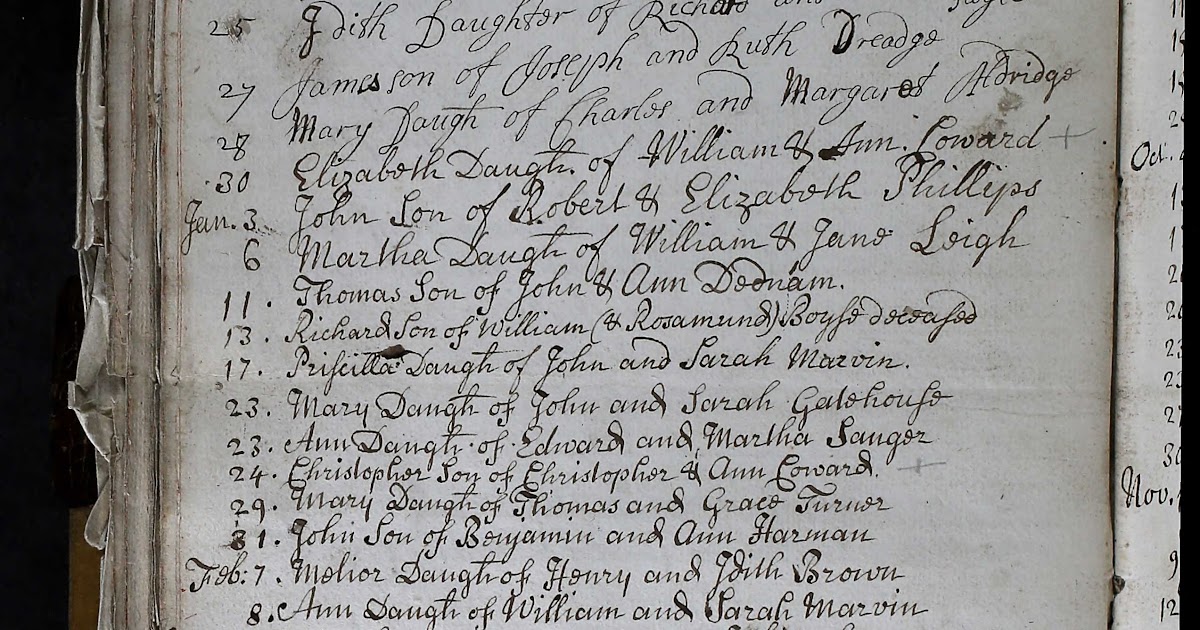 25 Jdith Daughter of Richard and
27 James son of Joseph and Ruth Dreadge
28 Mary Daugh of Charles and Margaret Aldridge
30 Elizabeth Daugh. of William & Ann. Coward +
Jan. 3. John Son of Robert & Elizabeth Phillips
6 Martha Daugh of William & Jane Leigh
11. Thomas Son of John & Ann Dednam.
13. Richard Son of William (& Rosamund) Boyse deceased
17. Priscilla Daugh of John and Sarah Marvin.
23. Mary Daugh of John and Sarah Gatehouse
23. Ann Daugh. of Edward and Martha Sanger
24. Christopher Son of Christopher & Ann Coward. +
29. Mary Daugh of Thomas and Grace Turner
31. John Son of Benjamin and Ann Harman
Feb: 7. Melior Daugh of Henry and Jdith Brown
8. Ann Daugh of William and Sarah Marvin
Oct.
Nov.
9
12